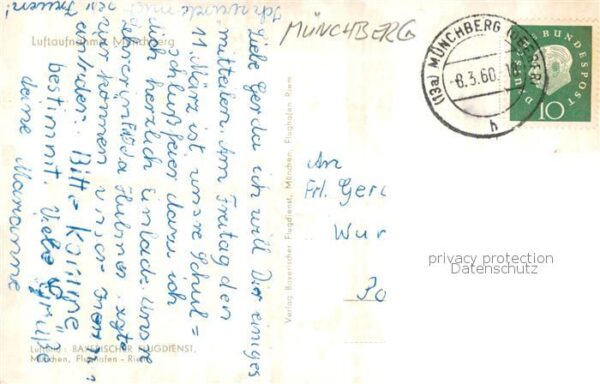 Luftaufnahme Münchberg
MÜNCHBERG
(13a) MÜNCHBERG (OBERFR)
-8.3.60.
h
DEUTSCHE BUNDESPOST
10
Liebe Gerda ich will Dir einiges
mitteilen. Am Freitag den
11. März ist unsre Schul=
schlußfeier dazu ich
dich herzlich Einlade. Unsre
Lehrerin Frida Hübner sagte
wir können unsre
einladen. Bitte komme
bestimmt. Viele Grüße
deine Marianne
Ich würde mich
sehr freuen!
Verlag Bayerischer Flugdienst, München, Flughafen Riem
An
Frl. Ger
Wur
Po
privacy protection
Datenschutz
Luftbild: BAYERISCHER FLUGDIENST,
München, Flughafen - Riem